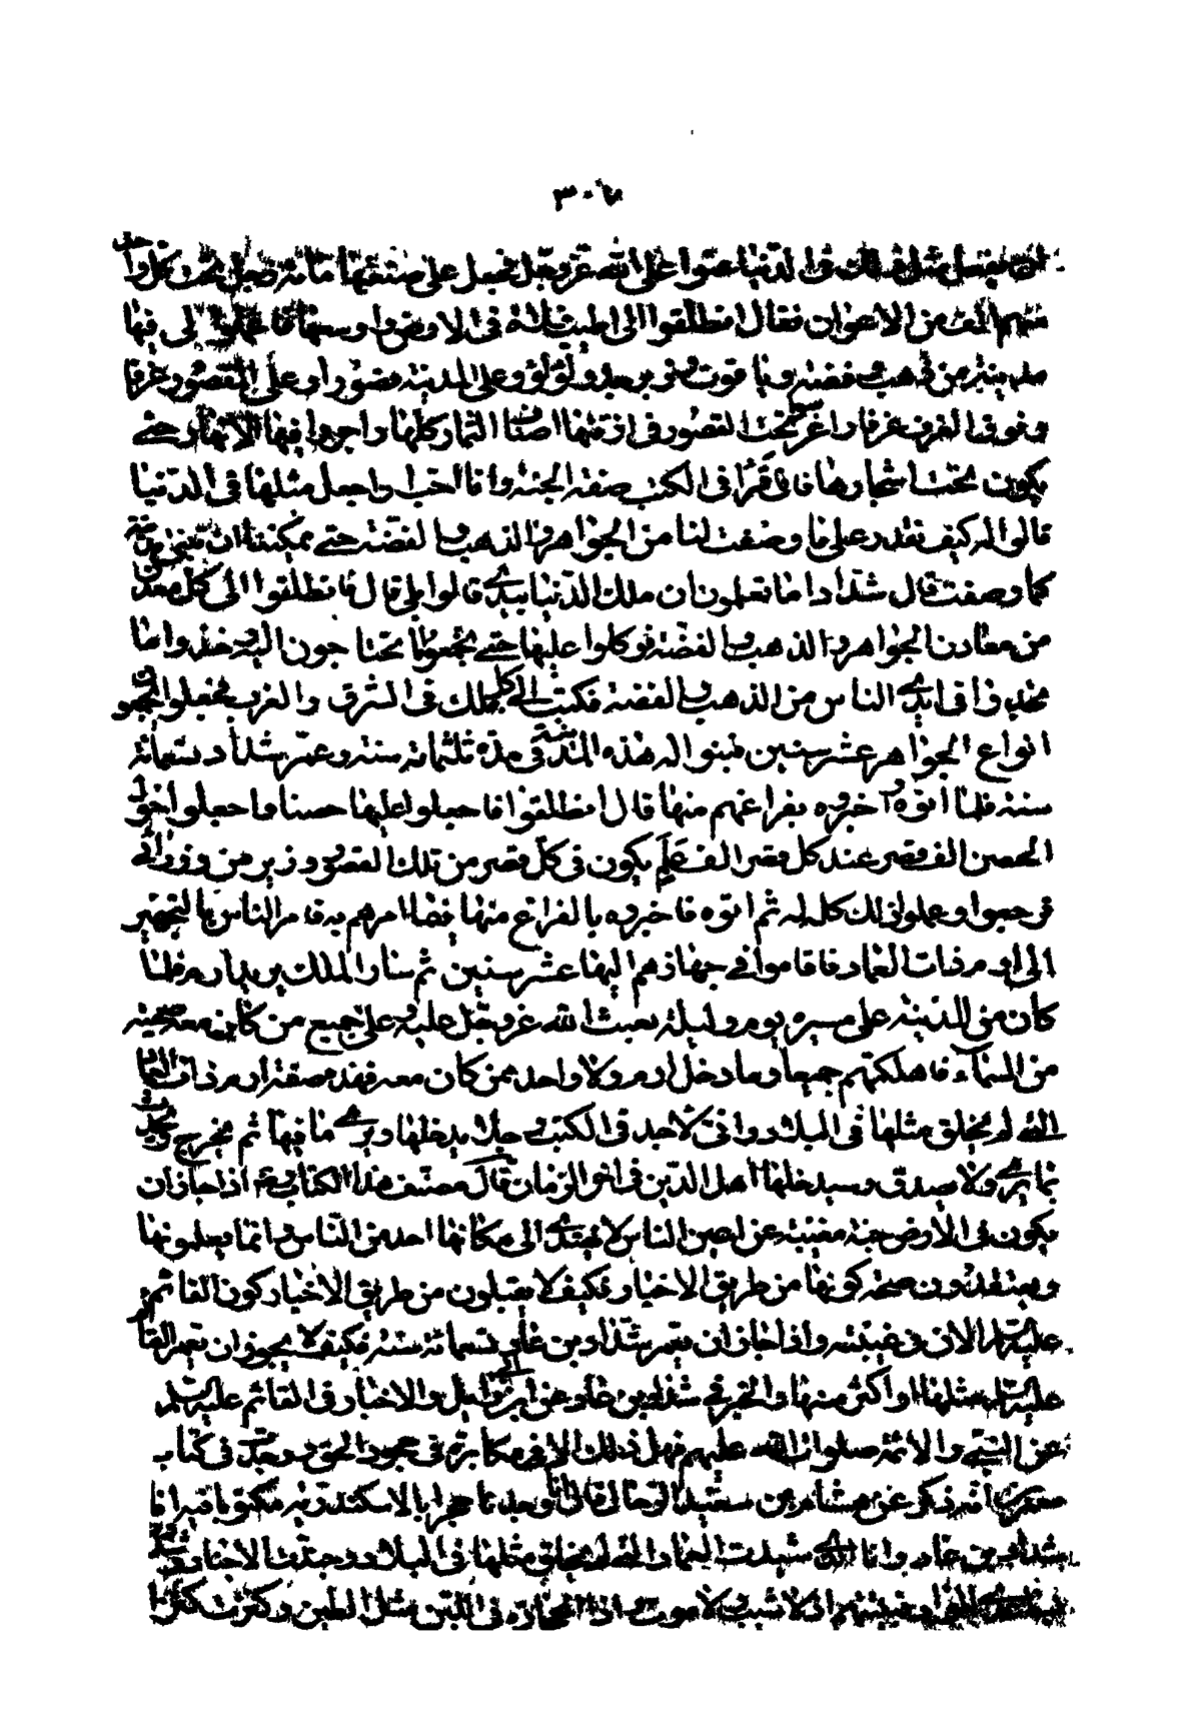 ٣٠٦
مثل ذلك في الدنيا عتوا على الله عز وجل فجعل على صنعتها مائة رجل تحت كل واحد
منهم الف من الاعوان فقال انطلقوا الى اطيب فلاة في الارض واوسعها فاعملوا لي فيها
مدينة من ذهب وفضة وياقوت وزبرجد ولؤلؤ وعلى المدينة قصورا وعلى القصور غرفا
وفوق الغرف غرفا واغرسوا تحت القصور في ازقتها اصناف الثمار كلها واجروا فيها الانهار حتى
يكون تحت اشجارها فاني قرأت في الكتب صفة الجنة وانا احب ان اجعل مثلها في الدنيا
قالوا له كيف نقدر على ما وصفت لنا من الجواهر والذهب والفضة حتى يمكننا ان نبني مدينة
كما وصفت قال شداد اما تعلمون ان ملك الدنيا بيدي قالوا بلى قال فانطلقوا الى كل معدن
من معادن الجواهر والذهب والفضة فوكلوا عليها حتى تجمعوا ما تحتاجون اليه وخذوا ما
تجدون في ايدي الناس من الذهب والفضة فكتبوا الى كل ملك في الشرق والغرب فجعلوا يجمعون
انواع الجواهر عشر سنين فبنوا له هذه المدينة في مدة ثلثمائة سنة وعمر شداد تسعمائة
سنة فلما اتوه واخبروه بفراغهم منها قال انطلقوا فاجعلوا عليها حصنا واجعلوا حول
الحصن الف قصر عند كل قصر الف علم يكون في كل قصر من تلك القصور وزير من وزرائي
فرجعوا وعملوا ذلك كله له ثم اتوه فاخبروه بالفراغ منها كما امرهم به فامر الناس بالتجهيز
الى ارم ذات العماد فاقاموا في جهازهم اليها عشر سنين ثم سار الملك يريد ارم فلما
كان من المدينة على مسيرة يوم وليلة بعث الله عز وجل عليه وعلى جميع من كان معه صيحة
من السماء فاهلكتهم جميعا وما دخل ارم ولا احد ممن كان معه فهذه صفة ارم ذات العماد
التي لم يخلق مثلها في البلاد واني لاجد في الكتب ان رجلا يدخلها ويرى ما فيها ثم يخرج ويحدث
بما يرى ولا يصدق وسيدخلها اهل الدين في اخر الزمان قال مصنف هذا الكتاب رض اذا جاز ان
يكون في الارض جنة مغيبة عن اعين الناس لا يهتدي الى مكانها احد من الناس وانما يعلمونها
ويعتقدون صحة كونها من طريق الاخبار فكيف لا يقبلون من طريق الاخبار كون القائم
عليه السلم الان في غيبته واذا جاز ان يعمر شداد بن عاد تسعمائة سنة فكيف لا يجوز ان يعمر القائم
عليه السلم مثلها او اكثر منها والخبر في شداد بن عاد عن ابي وائل والاخبار في القائم عليه السلم
عن النبي والائمة صلوات الله عليهم فهل ذلك الا مكابرة في جحود الحق ووجدت في كتاب
المعمرين انه ذكر عن هشام بن سعيد الرحال قال انا وجدنا حجرا بالاسكندرية مكتوبا فيه انا
شداد بن عاد وانا الذي شيدت العماد التي لم يخلق مثلها في البلاد وجندت الاجناد وشددت
بساعدي الواد فبنيتهن اذ لا شيب ولا موت واذ الحجارة في اللين مثل الطين وكنزت كنزا